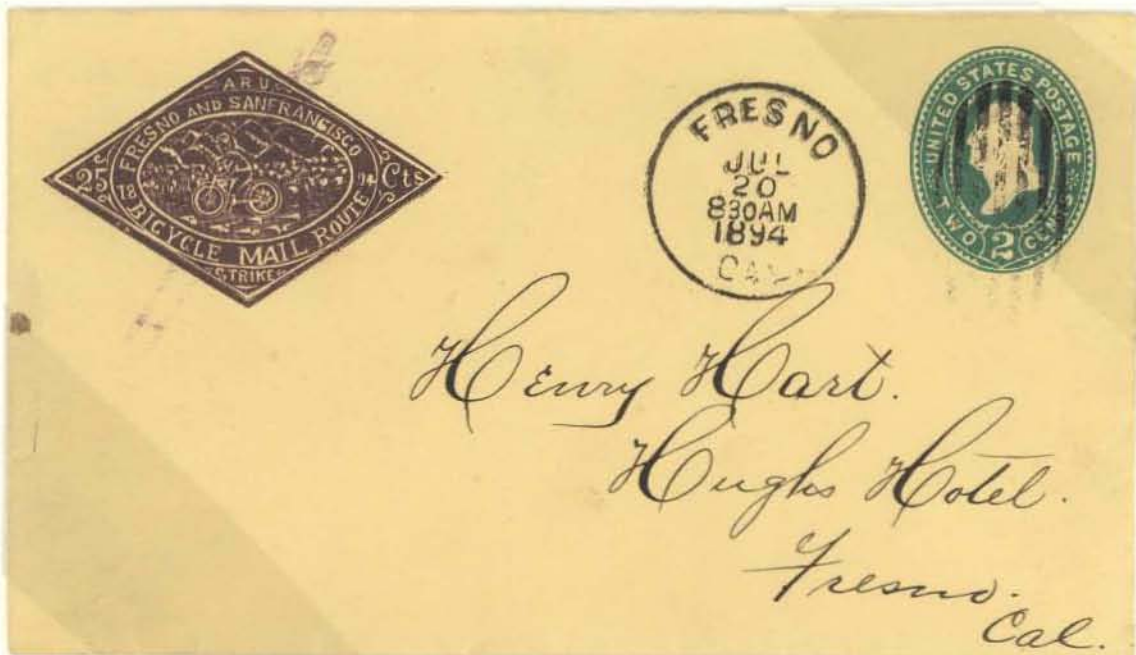 A R U
FRESNO AND SANFRANCISCO
25 18 94 Cts
BICYCLE MAIL ROUTE
STRIKE
FRESNO
JUL
20
830AM
1894
CAL
UNITED STATES POSTAGE
TWO 2 CENTS
Henry Hart.
Hughs Hotel.
Fresno.
Cal.